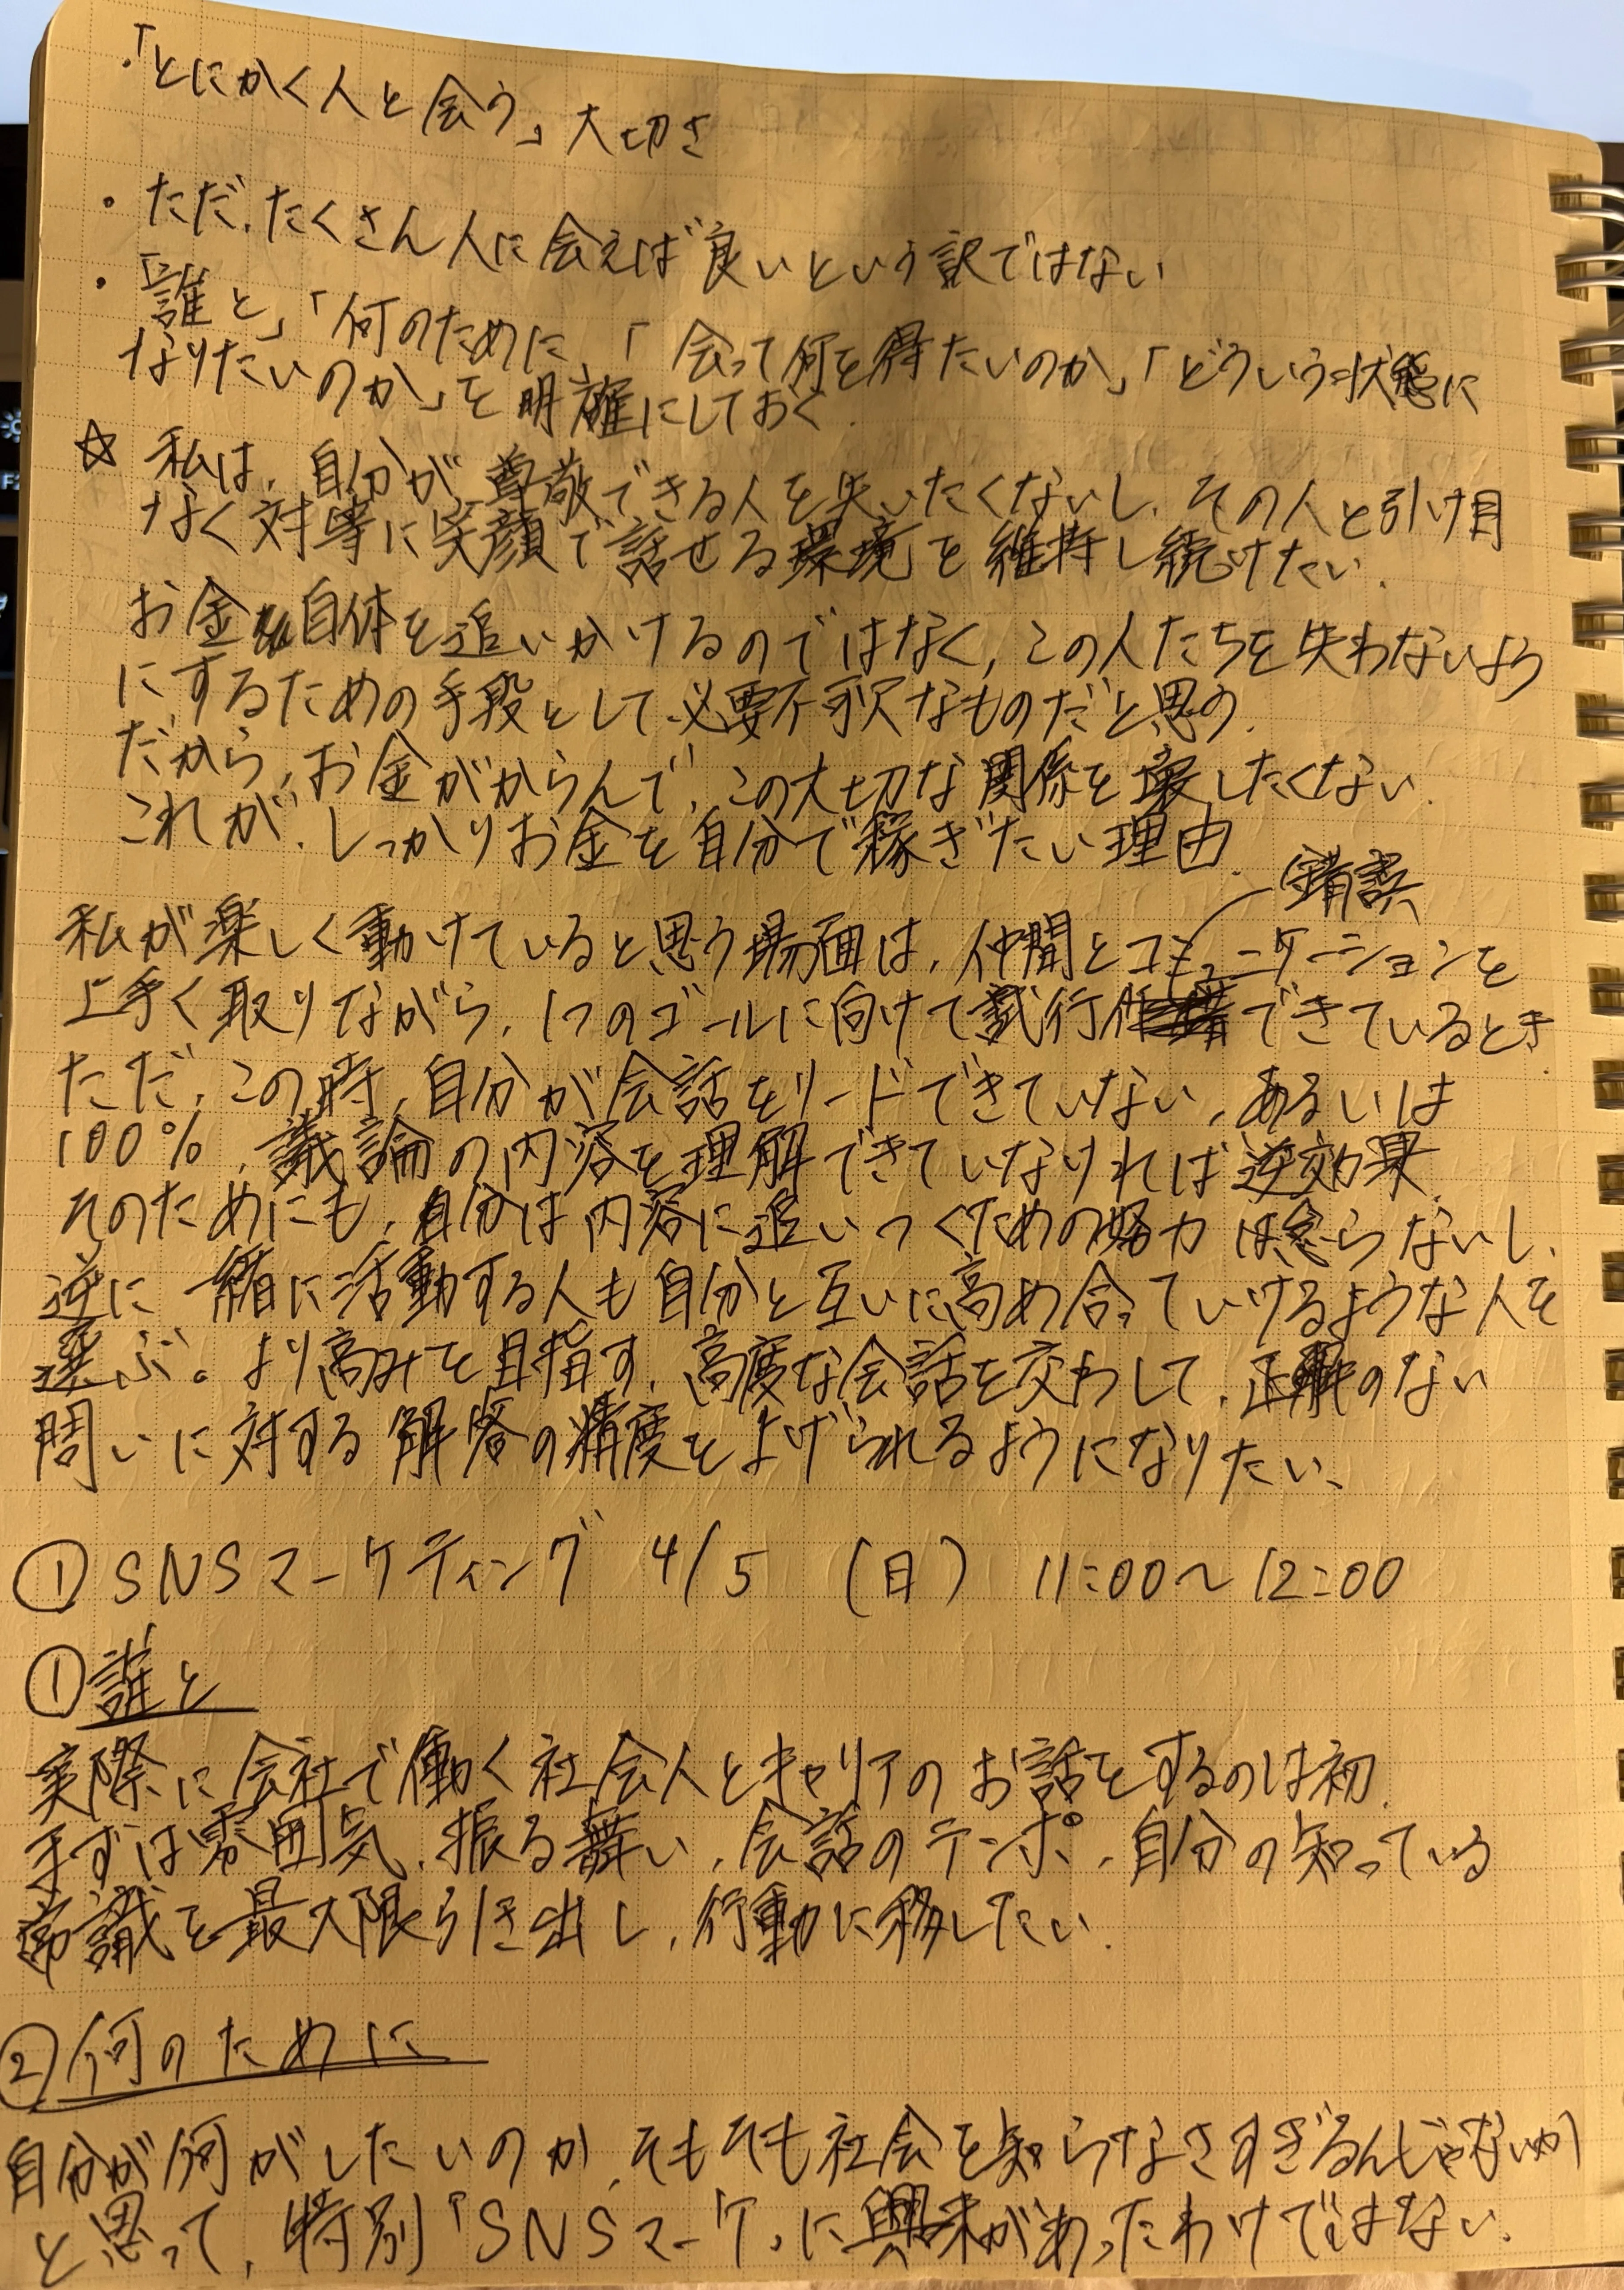 ・「とにかく人と会う」大切さ
・ただ、たくさん人に会えば良いという訳ではない
・「誰と」「何のために」「会って何を得たいのか」「どういう状態に
なりたいのか」を明確にしておく.
☆ 私は、自分が尊敬できる人を失いたくないし、その人と引け目
なく対等に笑顔で話せる環境を維持し続けたい.
お金自体を追いかけるのではなく、この人たちを失わないよう
にするための手段として必要不可欠なものだと思う.
だから、お金がからんで、この大切な関係を壊したくない.
これが、しっかりお金を自分で稼ぎたい理由.
私が楽しく動けていると思う場面は、仲間とコミュニケーションを
上手く取りながら、1つのゴールに向けて試行錯誤できているとき.
ただ、この時、自分が会話をリードできていない、あるいは
100%、議論の内容を理解できていなければ逆効果.
そのためにも、自分は内容に追いつくための努力は怠らないし、
逆に一緒に活動する人も自分と互いに高め合っていけるような人を
選ぶ。より高みを目指す、高度な会話を交わして、正解のない
問いに対する解答の精度を上げられるようになりたい、
① SNSマーケティング 4/5 (日) 11:00〜12:00
① 誰と
実際に会社で働く社会人とキャリアのお話をするのは初.
まずは雰囲気、振る舞い、会話のテンポ、自分の知っている
常識を最大限引き出し、行動に移したい.
② 何のために
自分が何がしたいのか、そもそも社会を知らなさすぎるんじゃないか
と思って、特別「SNSマーケ」に興味があったわけではない.